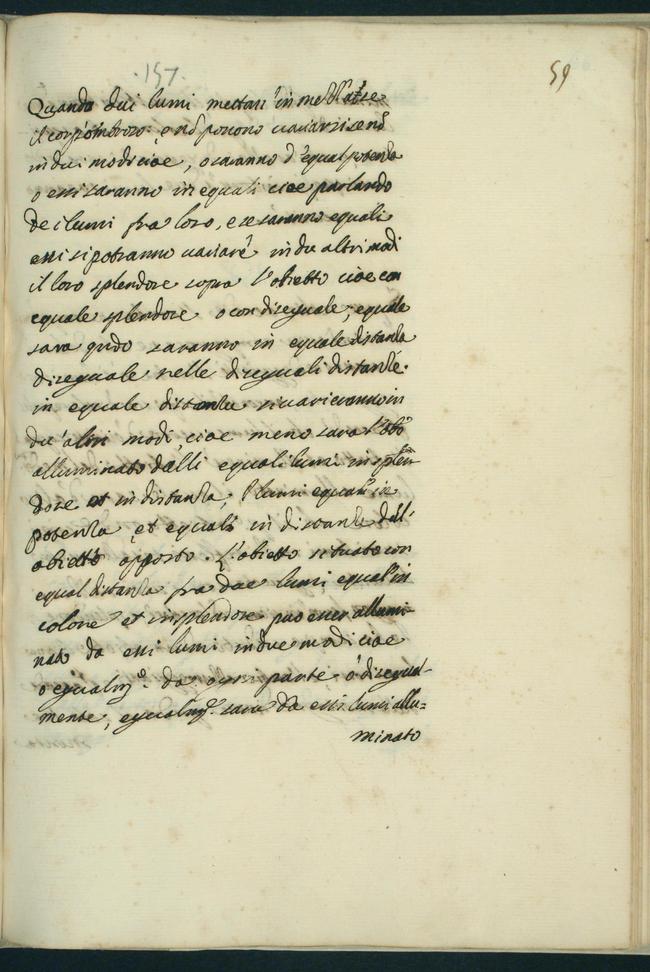 .157.
59
Quando dui lumi mettan' in mezzo a se
il corp'ombroso: e nõ pocono uariarsi se nõ
in dui modi cioe, o saranno d'equal potenza
o essi saranno inequali cioe parlando
de i lumi fra loro, e se saranno equali
essi si potranno uariare in du altri modi
il loro splendore sopra l'obietto cioe con
equale splendore o con diseguale; equale
sara qñdo saranno in equale distanza
diseguale nelle diseguali distanze.
in equale distanza si uarieranno in
du' altri modi, cioe meno sara l'obº
alluminato dalli equali lumi in splen-
dore et in distanza; I lumi equali in
potenza, et equali in distanza dal'
obietto opposto. L'obietto situato con
equal distanza fra due lumi equal'in
colore et in splendore puo esser allumi-
nato da essi lumi in due modi cioe
o equalmº. da ogni parte o disequal-
mente, equalmº. sara da essi lumi allu=
minato